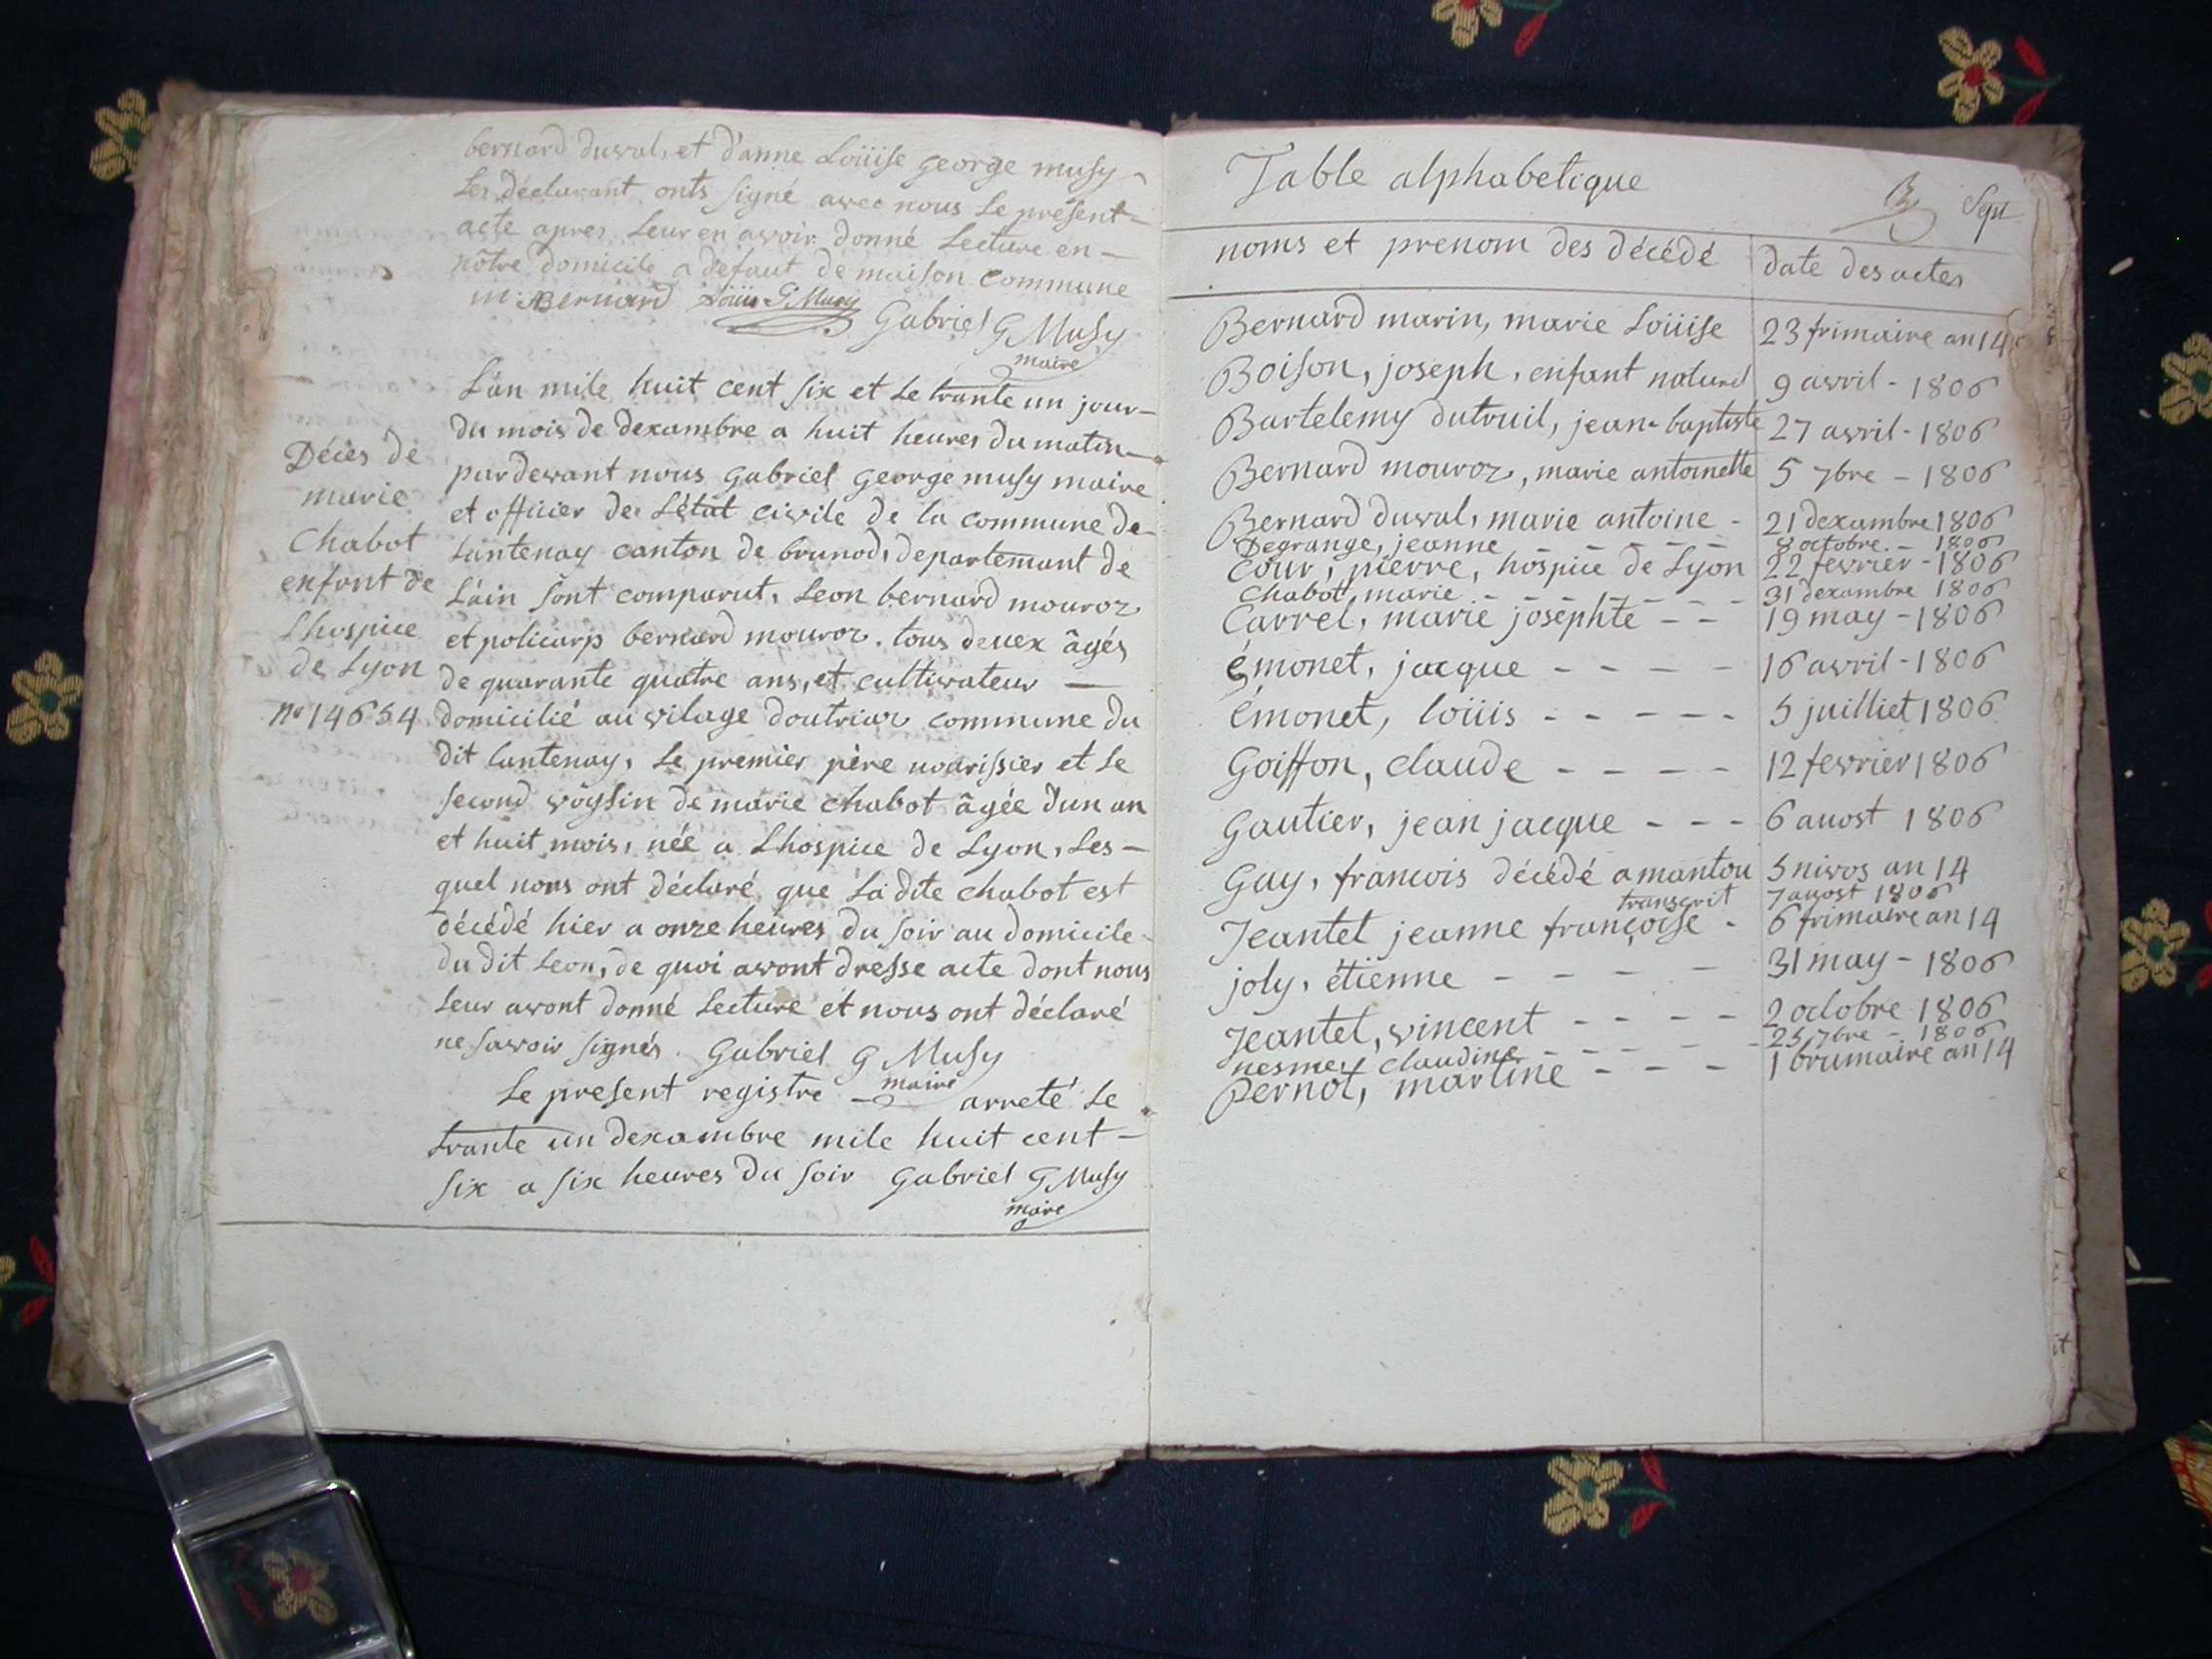 bernard duval, et d'anne Loüise george musy
Les déclarant onts signé avec nous Le présent
acte apres Leur en avoir donné Lecture en
nôtre domicile a défaut de maison commune
m: Bernard Loüis G Musy
Gabriel G Musy
maire
L'an mile huit cent six et Le trante un jour
du mois de dexambre a huit heures du matin
pardevant nous gabriel george musy maire
et officier de L'état civile de la commune de
Lantenay canton de brunod, departemant de
L'ain sont comparut, Leon bernard mouroz
et policarp bernard mouroz. tous deuex âgés
de quarante quatre ans, et cultivateur
domicilié au vilage doutriaz commune du
dit Lantenay, Le premier père nourissier et Le
second voysin de marie chabot âgée d'un an
et huit mois, née a Lhospice de Lyon, Les
quel nous ont déclaré que La dite chabot est
décédé hier a onze heures du soir au domicile
du dit Leon, de quoi avont dresse acte dont nous
Leur avont donné Lecture et nous ont déclaré
ne savoir signés. Gabriel G Musy
maire
Le present registre arreté Le
trante un dexambre mile huit cent
six a six heures du soir Gabriel G Musy
maire
Décès de
marie
Chabot
enfant de
Lhospice
de Lyon
n° 14654
Table alphabetique
noms et prenom des décédé date des actes
Bernard marin, marie Loüise 23 frimaire an 14
Boison, joseph, enfant naturel 9 avril - 1806
Bartelemy dutruil, jean-baptiste 27 avril - 1806
Bernard mouroz, marie antoinette 5 7bre - 1806
Bernard duval, marie antoine - 21 dexambre 1806
Degrange, jeanne - - - - - 8 octobre - 1806
Cour, pierre, hospice de Lyon 22 fevrier - 1806
Chabot, marie - - - - - - 31 dexambre 1806
Carrel, marie josephte - - 19 may - 1806
émonet, jacque - - - - 16 avril - 1806
émonet, loüis - - - - - 5 juilliet 1806
Goiffon, claude - - - - 12 fevrier 1806
Gautier, jean jacque - - - 6 auost 1806
Guy, francois décédé a mantou 5 nivos an 14
transcrit 7 auost 1806
Jeantet jeanne françoise - 6 frimaire an 14
joly, étienne - - - - 31 may - 1806
Jeantet, vincent - - - - 2 octobre 1806
nesmey claudine - - - - - 25 7bre - 1806
Pernot, martine - - - 1 brumaire an 14